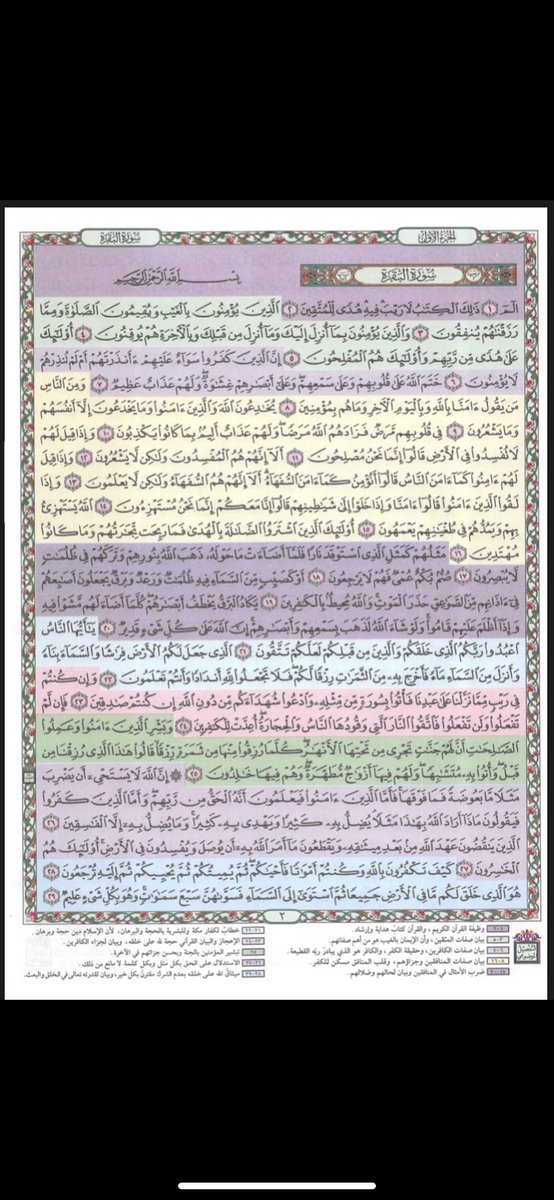 الجزء الأول
سورة البقرة
سورة البقرة
بسم الله الرحمن الرحيم
الٓمٓ ١ ذَٰلِكَ الْكِتَابُ لَا رَيْبَ فِيهِ هُدًى لِّلْمُتَّقِينَ ٢ الَّذِينَ يُؤْمِنُونَ بِالْغَيْبِ وَيُقِيمُونَ الصَّلَوٰةَ وَمِمَّا
رَزَقْنَٰهُمْ يُنفِقُونَ ٣ وَالَّذِينَ يُؤْمِنُونَ بِمَا أُنزِلَ إِلَيْكَ وَمَا أُنزِلَ مِن قَبْلِكَ وَبِالْآخِرَةِ هُمْ يُوقِنُونَ ٤ أُو۟لَٰئِكَ
عَلَىٰ هُدًى مِّن رَّبِّهِمْ وَأُو۟لَٰئِكَ هُمُ الْمُفْلِحُونَ ٥ إِنَّ الَّذِينَ كَفَرُوا سَوَاءٌ عَلَيْهِمْ ءَأَنذَرْتَهُمْ أَمْ لَمْ تُنذِرْهُمْ
لَا يُؤْمِنُونَ ٦ خَتَمَ اللَّهُ عَلَىٰ قُلُوبِهِمْ وَعَلَىٰ سَمْعِهِمْ وَعَلَىٰ أَبْصَٰرِهِمْ غِشَٰوَةٌ وَلَهُمْ عَذَابٌ عَظِيمٌ ٧ وَمِنَ النَّاسِ
مَن يَقُولُ ءَامَنَّا بِاللَّهِ وَبِالْيَوْمِ الْآخِرِ وَمَا هُم بِمُؤْمِنِينَ ٨ يُخَٰدِعُونَ اللَّهَ وَالَّذِينَ ءَامَنُوا وَمَا يَخْدَعُونَ إِلَّا أَنفُسَهُمْ
وَمَا يَشْعُرُونَ ٩ فِي قُلُوبِهِم مَّرَضٌ فَزَادَهُمُ اللَّهُ مَرَضًا وَلَهُمْ عَذَابٌ أَلِيمٌ بِمَا كَانُوا يَكْذِبُونَ ١٠ وَإِذَا قِيلَ لَهُمْ
لَا تُفْسِدُوا فِي الْأَرْضِ قَالُوا إِنَّمَا نَحْنُ مُصْلِحُونَ ١١ أَلَا إِنَّهُمْ هُمُ الْمُفْسِدُونَ وَلَٰكِن لَّا يَشْعُرُونَ ١٢ وَإِذَا قِيلَ
لَهُمْ ءَامِنُوا كَمَا ءَامَنَ النَّاسُ قَالُوا أَنُؤْمِنُ كَمَا ءَامَنَ السُّفَهَاءُ أَلَا إِنَّهُمْ هُمُ السُّفَهَاءُ وَلَٰكِن لَّا يَعْلَمُونَ ١٣ وَإِذَا
لَقُوا الَّذِينَ ءَامَنُوا قَالُوا ءَامَنَّا وَإِذَا خَلَوْا إِلَىٰ شَيَٰطِينِهِمْ قَالُوا إِنَّا مَعَكُمْ إِنَّمَا نَحْنُ مُسْتَهْزِءُونَ ١٤ اللَّهُ يَسْتَهْزِئُ
بِهِمْ وَيَمُدُّهُمْ فِي طُغْيَٰنِهِمْ يَعْمَهُونَ ١٥ أُو۟لَٰئِكَ الَّذِينَ اشْتَرَوُا الضَّلَٰلَةَ بِالْهُدَىٰ فَمَا رَبِحَت تِّجَٰرَتُهُمْ وَمَا كَانُوا
مُهْتَدِينَ ١٦ مَثَلُهُمْ كَمَثَلِ الَّذِي اسْتَوْقَدَ نَارًا فَلَمَّا أَضَاءَتْ مَا حَوْلَهُ ذَهَبَ اللَّهُ بِنُورِهِمْ وَتَرَكَهُمْ فِي ظُلُمَٰتٍ
لَّا يُبْصِرُونَ ١٧ صُمٌّ بُكْمٌ عُمْيٌ فَهُمْ لَا يَرْجِعُونَ ١٨ أَوْ كَصَيِّبٍ مِّنَ السَّمَاءِ فِيهِ ظُلُمَٰتٌ وَرَعْدٌ وَبَرْقٌ يَجْعَلُونَ أَصَٰبِعَهُمْ
فِي ءَاذَانِهِم مِّنَ الصَّوَٰعِقِ حَذَرَ الْمَوْتِ وَاللَّهُ مُحِيطٌ بِالْكَٰفِرِينَ ١٩ يَكَادُ الْبَرْقُ يَخْطَفُ أَبْصَٰرَهُمْ كُلَّمَا أَضَاءَ لَهُم مَّشَوْا فِيهِ
وَإِذَا أَظْلَمَ عَلَيْهِمْ قَامُوا وَلَوْ شَاءَ اللَّهُ لَذَهَبَ بِسَمْعِهِمْ وَأَبْصَٰرِهِمْ إِنَّ اللَّهَ عَلَىٰ كُلِّ شَيْءٍ قَدِيرٌ ٢٠ يَٰأَيُّهَا النَّاسُ
اعْبُدُوا رَبَّكُمُ الَّذِي خَلَقَكُمْ وَالَّذِينَ مِن قَبْلِكُمْ لَعَلَّكُمْ تَتَّقُونَ ٢١ الَّذِي جَعَلَ لَكُمُ الْأَرْضَ فِرَٰشًا وَالسَّمَاءَ بِنَاءً
وَأَنزَلَ مِنَ السَّمَاءِ مَاءً فَأَخْرَجَ بِهِ مِنَ الثَّمَرَٰتِ رِزْقًا لَّكُمْ فَلَا تَجْعَلُوا لِلَّهِ أَندَادًا وَأَنتُمْ تَعْلَمُونَ ٢٢ وَإِن كُنتُمْ
فِي رَيْبٍ مِّمَّا نَزَّلْنَا عَلَىٰ عَبْدِنَا فَأْتُوا بِسُورَةٍ مِّن مِّثْلِهِ وَادْعُوا شُهَدَاءَكُم مِّن دُونِ اللَّهِ إِن كُنتُمْ صَٰدِقِينَ ٢٣ فَإِن لَّمْ
تَفْعَلُوا وَلَن تَفْعَلُوا فَاتَّقُوا النَّارَ الَّتِي وَقُودُهَا النَّاسُ وَالْحِجَارَةُ أُعِدَّتْ لِلْكَٰفِرِينَ ٢٤ وَبَشِّرِ الَّذِينَ ءَامَنُوا وَعَمِلُوا
الصَّٰلِحَٰتِ أَنَّ لَهُمْ جَنَّٰتٍ تَجْرِي مِن تَحْتِهَا الْأَنْهَٰرُ كُلَّمَا رُزِقُوا مِنْهَا مِن ثَمَرَةٍ رِّزْقًا قَالُوا هَٰذَا الَّذِي رُزِقْنَا مِن
قَبْلُ وَأُتُوا بِهِ مُتَشَٰبِهًا وَلَهُمْ فِيهَا أَزْوَٰجٌ مُّطَهَّرَةٌ وَهُمْ فِيهَا خَٰلِدُونَ ٢٥ ۞ إِنَّ اللَّهَ لَا يَسْتَحْيِي أَن يَضْرِبَ
مَثَلًا مَّا بَعُوضَةً فَمَا فَوْقَهَا فَأَمَّا الَّذِينَ ءَامَنُوا فَيَعْلَمُونَ أَنَّهُ الْحَقُّ مِن رَّبِّهِمْ وَأَمَّا الَّذِينَ كَفَرُوا
فَيَقُولُونَ مَاذَا أَرَادَ اللَّهُ بِهَٰذَا مَثَلًا يُضِلُّ بِهِ كَثِيرًا وَيَهْدِي بِهِ كَثِيرًا وَمَا يُضِلُّ بِهِ إِلَّا الْفَٰسِقِينَ ٢٦
الَّذِينَ يَنقُضُونَ عَهْدَ اللَّهِ مِن بَعْدِ مِيثَٰقِهِ وَيَقْطَعُونَ مَا أَمَرَ اللَّهُ بِهِ أَن يُوصَلَ وَيُفْسِدُونَ فِي الْأَرْضِ أُو۟لَٰئِكَ هُمُ
الْخَٰسِرُونَ ٢٧ كَيْفَ تَكْفُرُونَ بِاللَّهِ وَكُنتُمْ أَمْوَٰتًا فَأَحْيَٰكُمْ ثُمَّ يُمِيتُكُمْ ثُمَّ يُحْيِيكُمْ ثُمَّ إِلَيْهِ تُرْجَعُونَ ٢٨
هُوَ الَّذِي خَلَقَ لَكُم مَّا فِي الْأَرْضِ جَمِيعًا ثُمَّ اسْتَوَىٰ إِلَى السَّمَاءِ فَسَوَّىٰهُنَّ سَبْعَ سَمَٰوَٰتٍ وَهُوَ بِكُلِّ شَيْءٍ عَلِيمٌ ٢٩
٢
وظيفة القرآن الكريم، والقرآن كتاب هداية وإرشاد.
بيان صفات المتقين، وأن الإيمان بالغيب هو من أهم صفاتهم.
بيان صفات الكافرين، وحقيقة الكفر، والكافر هو الذي يبادر ربه القطيعة.
٨-١٦ بيان صفات المنافقين وجزاؤهم، وقلب المنافق مسكن للكفر.
ضرب الأمثال في المنافقين وبيان لحالهم وضلالهم.
٢١-٢٢ خطاب لكفار مكة وللبشرية بالحجة والبرهان، لأن الإسلام دين حجة وبرهان.
٢٣-٢٤ الإعجاز والبيان القرآني حجة لله على خلقه، وبيان لجزاء الكافرين.
٢٥ تبشير المؤمنين بالجنة وبحسن جزائهم في الآخرة.
٢٦-٢٧ الاستدلال على الحق بكل مثل وبكل كلمة لا مانع من ذلك.
٢٨-٢٩ ميثاق الله على خلقه بعدم الشرك مقترن بكل خير، وبيان لقدرته تعالى في الخلق والبعث.